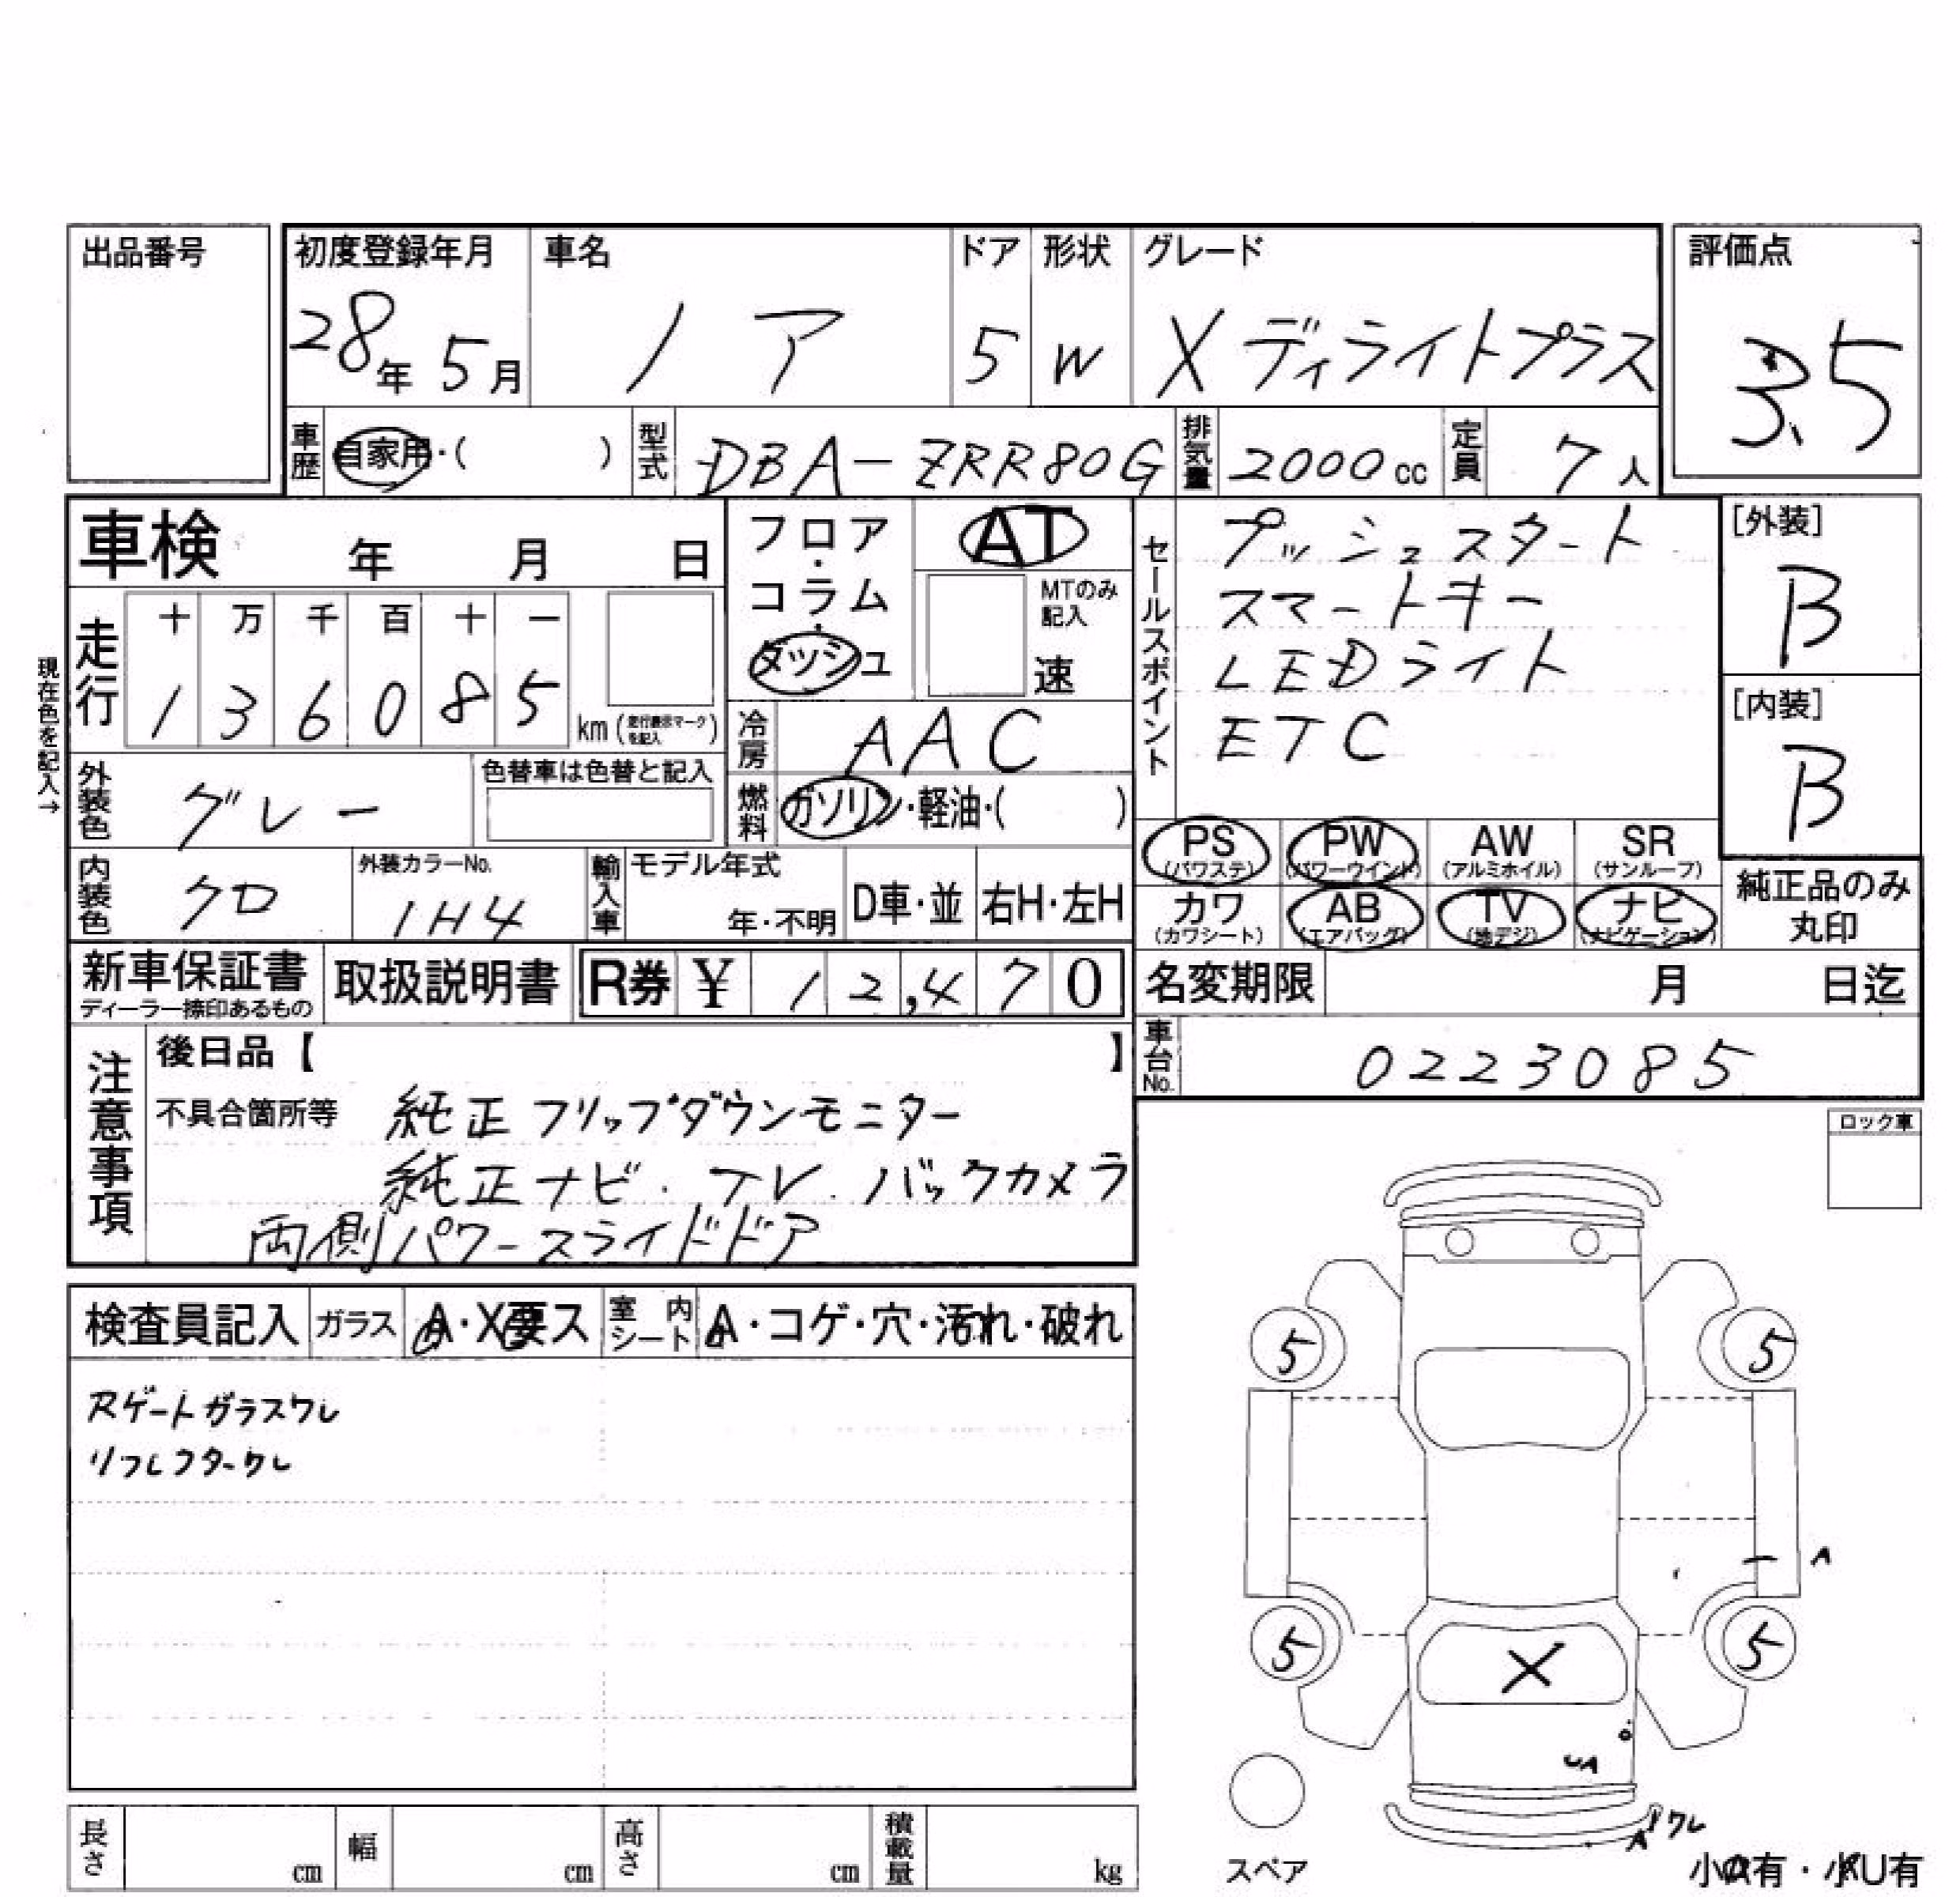 出品番号
初度登録年月 車名 ドア 形状 グレード 評価点
28年 5月 ノア 5 W Xディライトプラス 3.5
車歴 自家用・( ) 型式 DBA-ZRR80G 排気量 2000cc 定員 7人
車検 年 月 日
フロア・コラム・ダッシュ
AT
MTのみ記入
速
現在色を記入→
走行
十 万 千 百 十 一
1 3 6 0 8 5 km (走行表示マークを記入)
冷房 AAC
燃料 ガソリン・軽油・( )
外装色 グレー
色替車は色替と記入
内装色 クロ
外装カラーNo.
1H4
輸入車 モデル年式
年・不明
D車・並 右H・左H
セールスポイント
プッシュスタート
スマートキー
LEDライト
ETC
[外装]
B
[内装]
B
PS AW PW SR
(パワステ) (パワーウインド) (アルミホイル) (サンルーフ)
カワ AB TV ナビ
(カワシート) (エアバッグ) (地デジ) (ナビゲーション)
純正品のみ
丸印
新車保証書
ディーラー捺印あるもの
取扱説明書
R券 ¥ 12,470
名変期限 月 日迄
車台No. 0223085
注意事項
後日品【 】
不具合箇所等 純正フリップダウンモニター
純正ナビ.TV.バックカメラ
両側パワースライドドア
ロック車
検査員記入 ガラス A・X要ス 室内シート A・コゲ・穴・汚れ・破れ
Rゲートガラスワレ
リフレクターワレ
5 5
A
5 5
X
UA
ワレ
A
スペア
小A有・小U有
長さ cm 幅 cm 高さ cm 積載量 kg